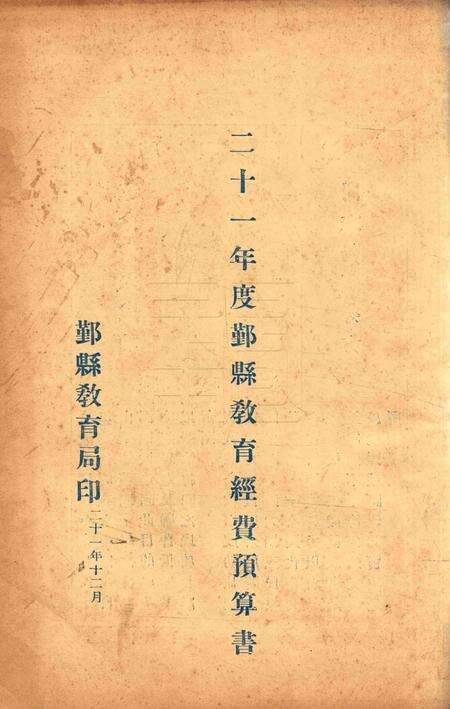 二十一年度鄞縣教育經費預算書
鄞縣教育局印
二十一年十二月